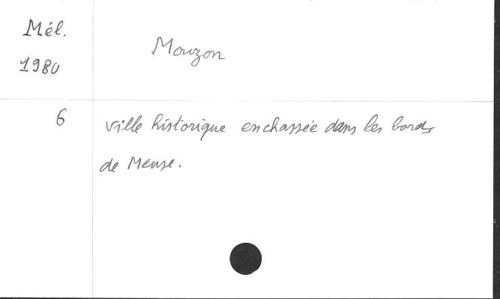 Mél.
1980
Mouzon
6
ville historique enchassée dans les bords
de Meuse.